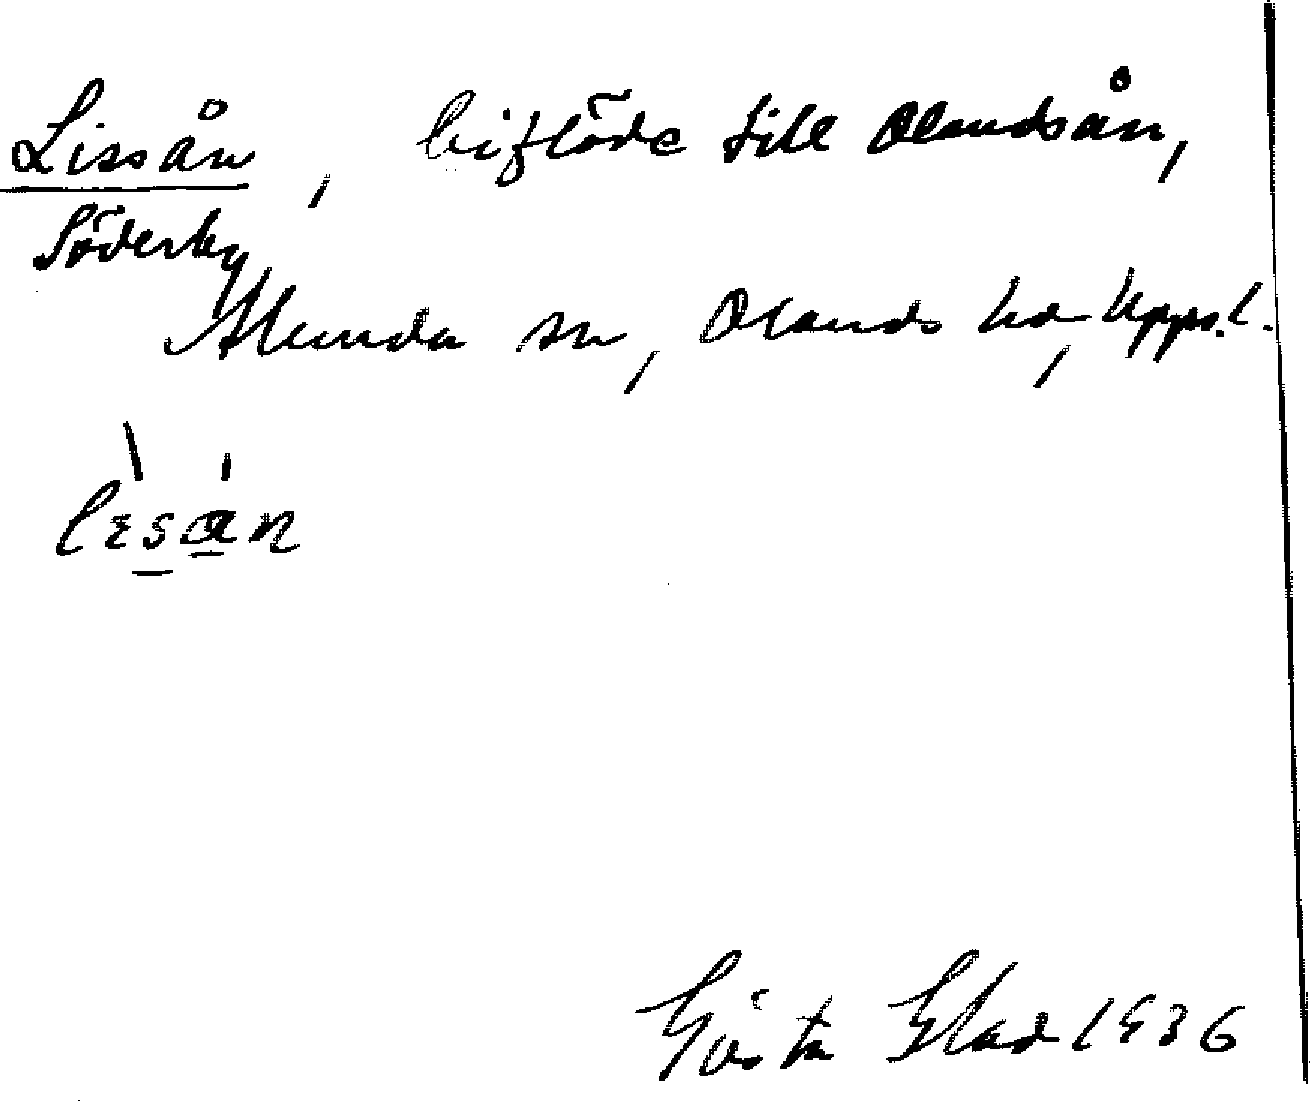 Lissån, biflöde till Olandsån,
Söderby
Alunda sn, Olands hd, Upps. l.
lɪsån
Gösta Blad 1936